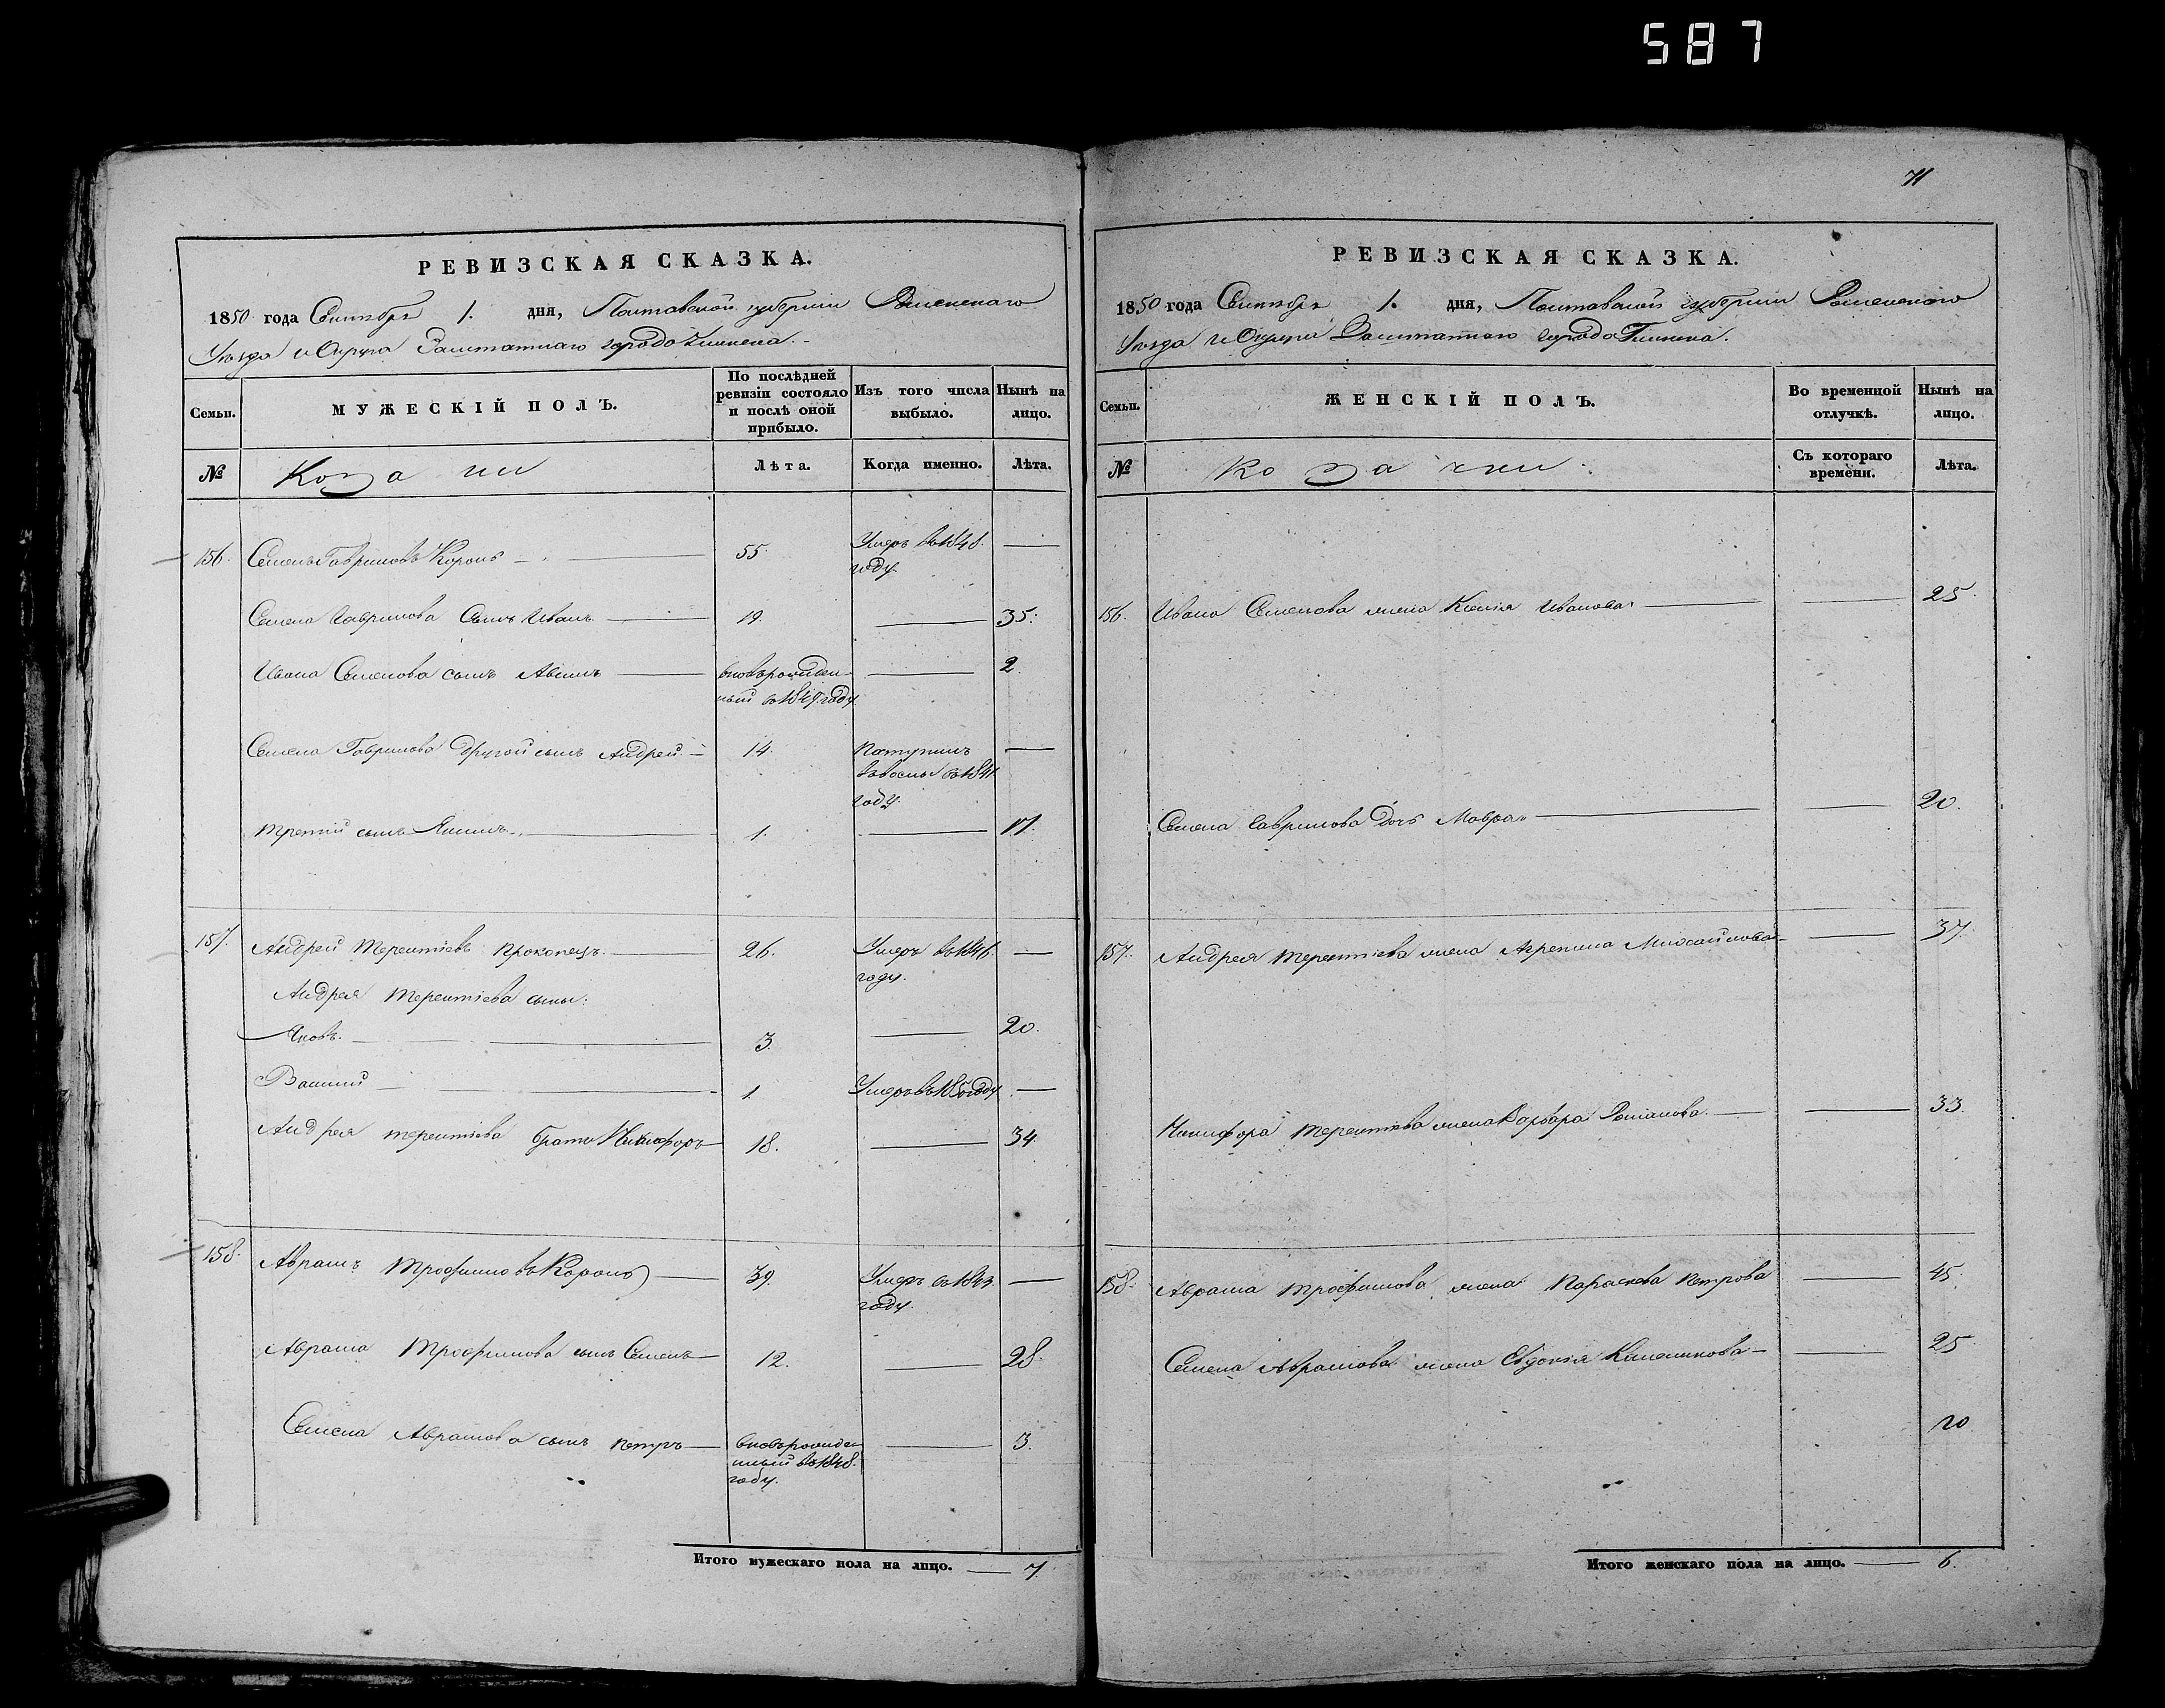 587
РЕВИЗСКАЯ СКАЗКА.
1850 года Сентября 1. дня, Полтавской губернии Роменскаго
Уезда и Округа Заштатнаго города Глинска.
Семьи.
МУЖЕСКІЙ ПОЛЪ.
По послѣдней
ревизіи состояло
и послѣ оной
прибыло.
Изъ того числа
выбыло.
Нынѣ на
лицо.
№
Козаки
Лѣта.
Когда именно.
Лѣта.
156. Семенъ Гавриловъ Король 55. Умеръ въ 1848. году.
Семена Гаврилова Сынъ Иванъ 19. 35.
Ивана Семенова сынъ вновь рожден- 2.
ный в 1849 году
Семена Гаврилова другой сынъ Андрей 14. Поступилъ
в 1841
году.
третий сынъ 1. 17.
157. Андрей Терентіевъ Прокопецъ. 26. Умеръ въ 1846.
году.
Андрея Терентіева сыны:
Яковъ. 3. 20.
Василий 1. Умеръ въ 1850 году
Андрея терентіева братъ Никифоръ 18. 34.
158. Аврамъ Трофимовъ Король 39. Умеръ в 1843.
году.
Аврама Трофимова сынъ Семенъ 12. 28.
Семена Аврамова сынъ петръ вновь рожде- 3.
нный въ 1848.
году.
Итого мужескаго пола на лицо. 7.
71
РЕВИЗСКАЯ СКАЗКА.
1850 года Сентября 1. дня, Полтавской губернии Роменского
Уезда и Округи Заштатного города Глинска.
Семьи.
ЖЕНСКІЙ ПОЛЪ.
Во временной
отлучкѣ.
Нынѣ на
лицо.
№
Козачки.
Съ котораго
времени.
Лѣта.
156. Ивана Семенова жена Ксенія Иванова 25.
Семена Гаврилова Дочь Мавра 20.
157. Андрея Терентіева жена Агрепина Михайлова 37.
Никифора Терентіева жена Варвара Романова. 33.
158. Аврама трофимова жена Параскева Петрова 45.
Семена Аврамова жена Евдокія 25
Итого женскаго пола на лицо. 6.